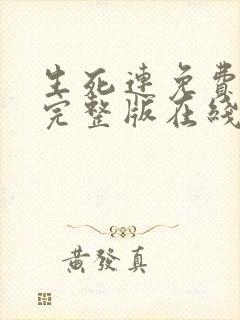 生死連免費
完整版在綫
黃發真